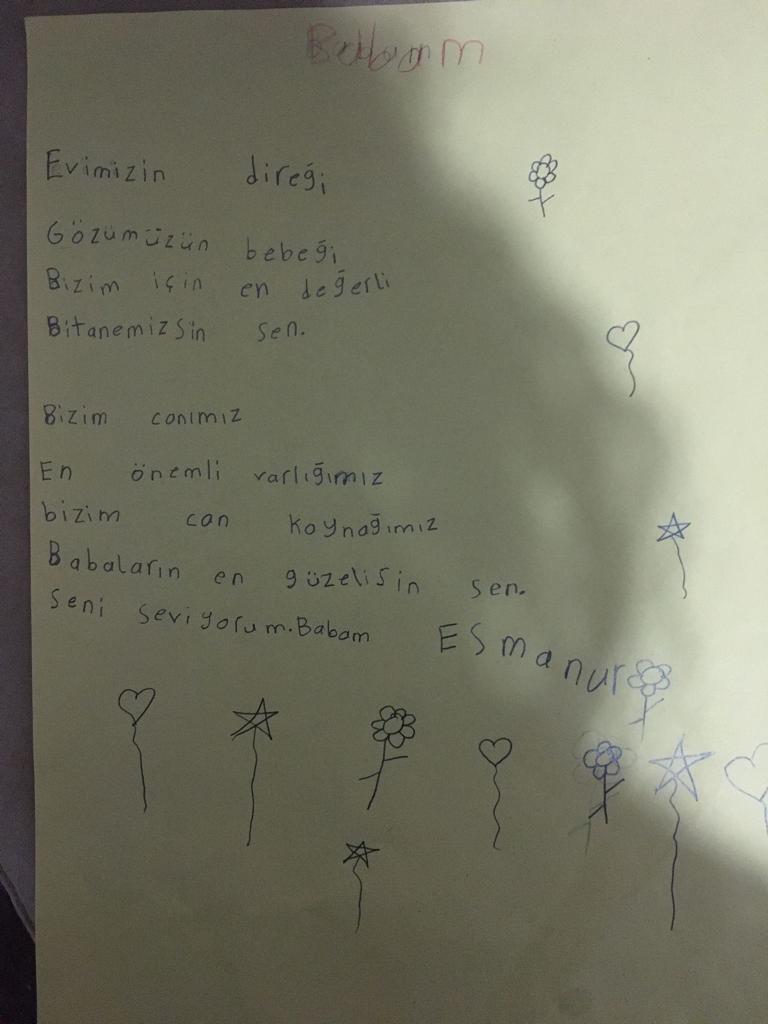 Babam
Evimizin direği
Gözümüzün bebeği
Bizim için en değerli
Bitanemizsin sen.
Bizim canımız
En önemli varlığımız
bizim can kaynağımız
Babaların en güzelisin sen.
Seni seviyorum.Babam Esmanur